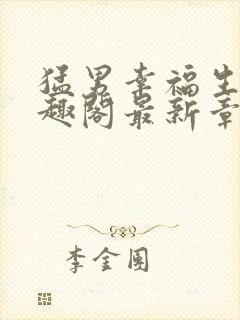 猛男幸福生
趣阁最新章
李金国